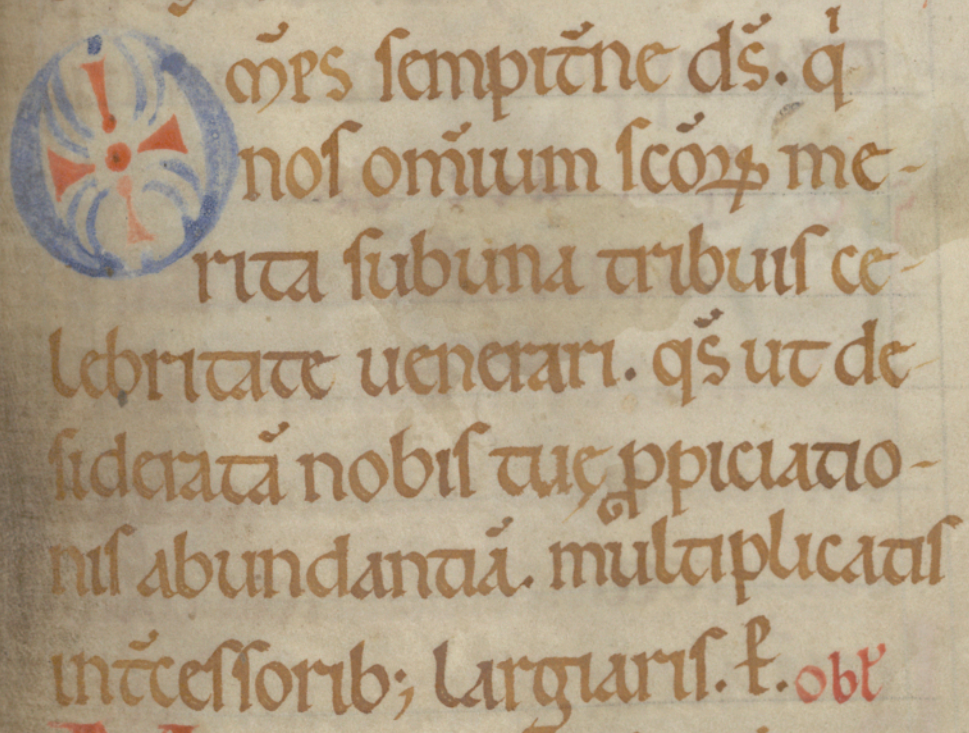 Om̄ps sempit̄ne ds̄. qⁱ
nos om̄ium sc̄oꝝ me-
rita subuna tribuis ce-
lebritate uenerari. qs̄ ut de-
siderata᷃ nobis tuę ꝓpiciatio-
nis abundantia᷃. multiplicatis
int̄cessorib; largiaris. P̶. obl̛